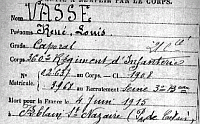 PARTIE À REMPLIR PAR LE CORPS.
Nom VASSE
Prénoms René Louis
Grade Caporal
Corps 360e Régiment d'Infanterie
N° 02651 au Corps. — Cl 1908
Matricule. 3968 au Recrutement Seine 3e B
Mort pour la France le 4 Juin 1915
à Ablain St Nazaire (Pas de Calais)